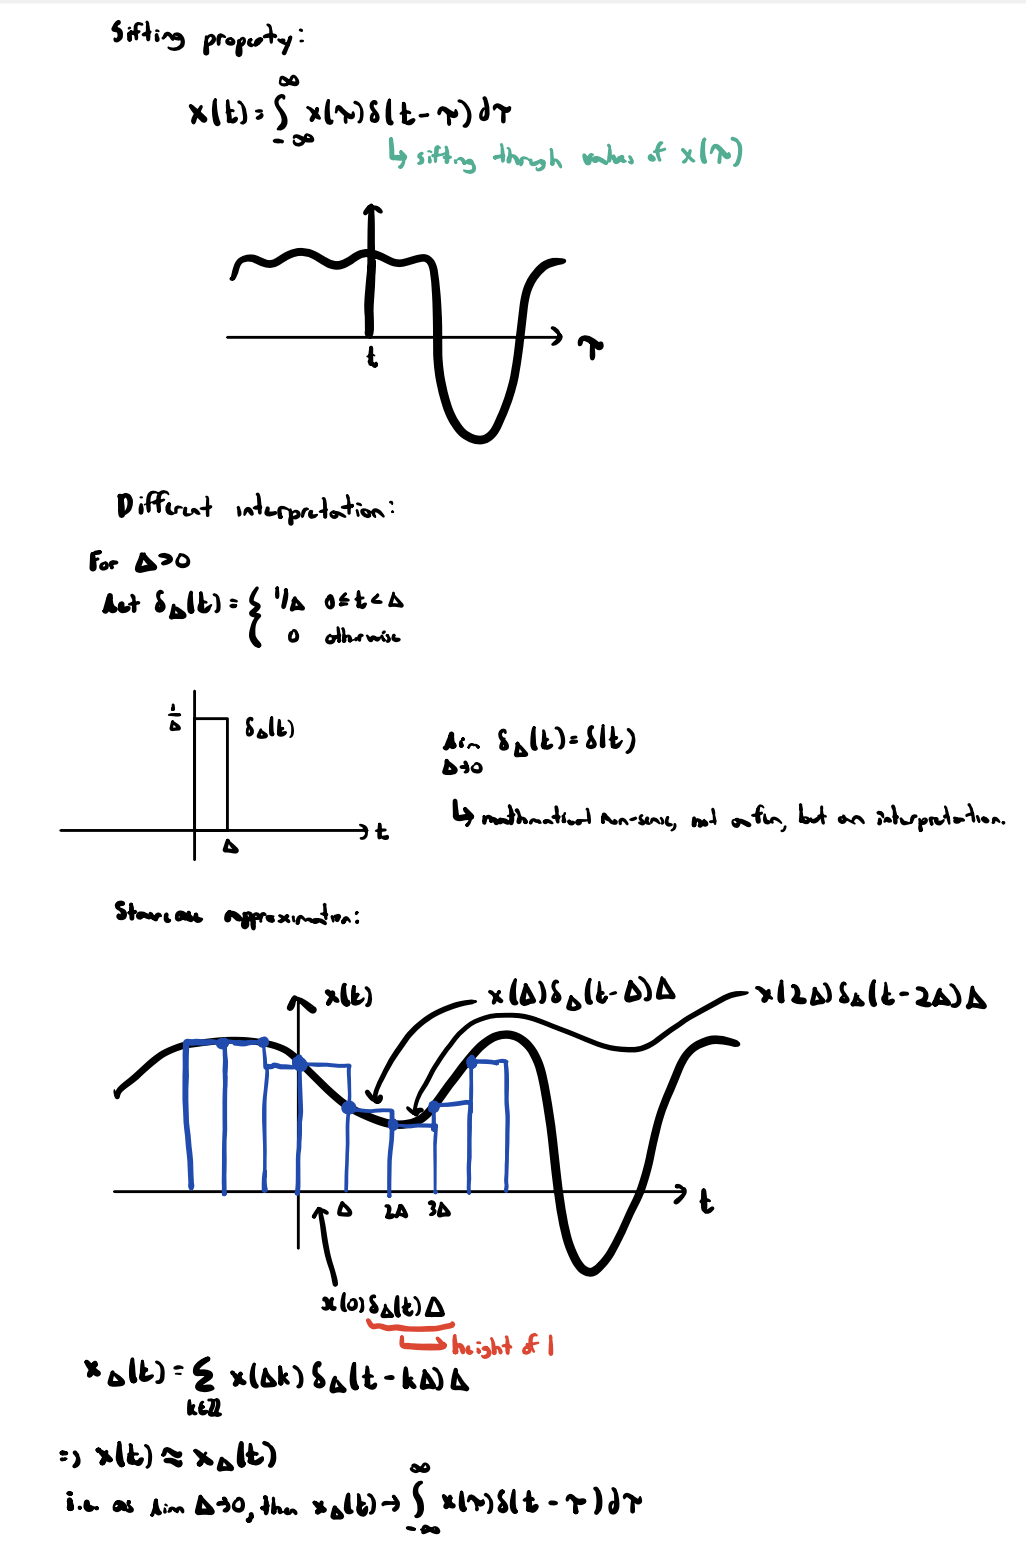 Sifting property:
x(t) = ∫_{-∞}^{∞} x(τ) δ(t-τ) dτ
↳ sifting through values of x(τ)
t
τ
Different interpretation:
For Δ>0
Let δ_Δ(t) = { 1/Δ 0≤t<Δ
0 otherwise
1/Δ
δ_Δ(t)
t
Δ
lim_{Δ→0} δ_Δ(t) = δ(t)
↳ mathematical non-sense, not a fcn, but an interpretation.
Staircase approximation:
x(t)
x(Δ)δ_Δ(t-Δ)Δ
x(2Δ)δ_Δ(t-2Δ)Δ
t
Δ 2Δ 3Δ
x(0)δ_Δ(t)Δ
→ height of 1
x_Δ(t) = Σ_{k∈ℤ} x(Δk) δ_Δ(t-kΔ)Δ
=> x(t) ≈ x_Δ(t)
i.e. as lim Δ→0, then x_Δ(t) → ∫_{-∞}^{∞} x(τ)δ(t-τ)dτ